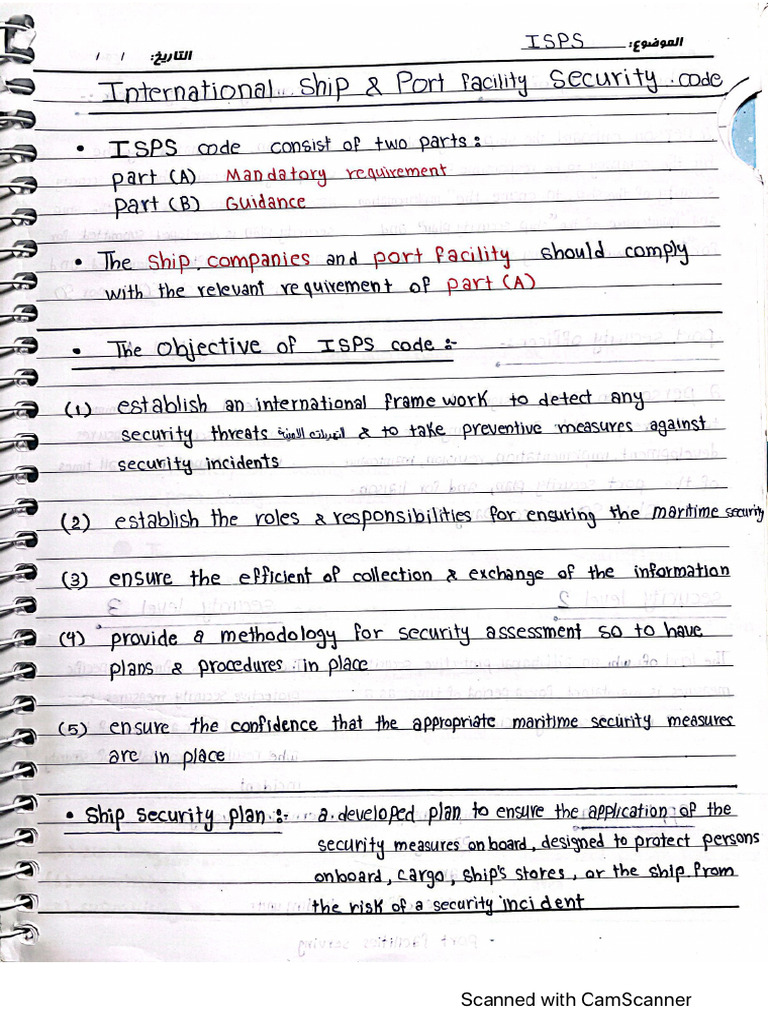 الموضوع: ISPS
التاريخ: / /
International Ship & Port facility Security code
• ISPS code consist of two parts:
part (A) Mandatory requirement
part (B) Guidance
• The ship companies and port facility should comply
with the relevant requirement of part (A)
• The Objective of ISPS code :-
(1) establish an international frame work to detect any
security threats & to take preventive measures against
security incidents
(2) establish the roles & responsibilities for ensuring the maritime security
(3) ensure the efficient of collection & exchange of the information
(4) provide a methodology for security assessment so to have
plans & procedures in place
(5) ensure the confidence that the appropriate maritime security measures
are in place
• Ship security plan :- a developed plan to ensure the application of the
security measures on board, designed to protect persons
onboard, cargo, ship's stores, or the ship from
the risk of a security incident
Scanned with CamScanner